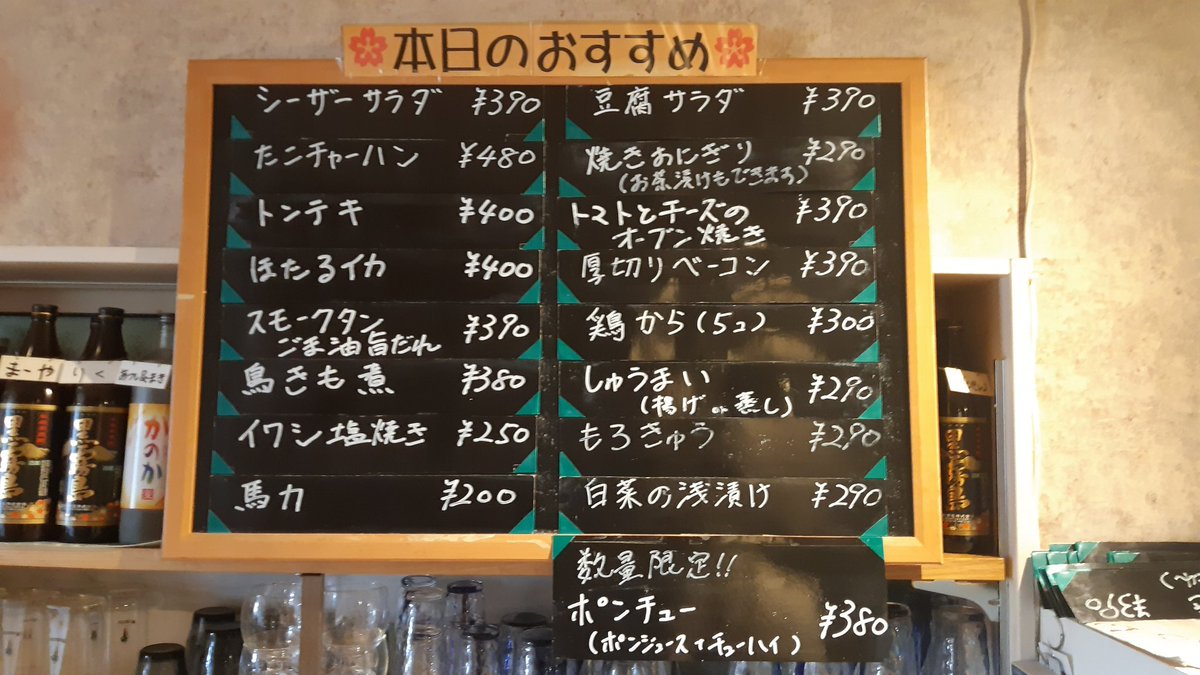 本日のおすすめ
シーザーサラダ ¥390
たこチャーハン ¥480
トンテキ ¥400
ほたるイカ ¥400
スモークタン ¥390
ごま油旨だれ
鳥きも煮 ¥380
イワシ塩焼き ¥250
馬力 ¥200
豆腐サラダ ¥390
焼きおにぎり ¥290
(お茶漬けもできます)
トマトとチーズの ¥390
オーブン焼き
厚切りベーコン ¥390
鶏から(5コ) ¥300
しゅうまい ¥290
(揚げor蒸し)
もろきゅう ¥290
白菜の浅漬け ¥290
数量限定!!
ポンチュー ¥380
(ポンジュース+チューハイ)
まーや
りく
黒霧島
黒霧島
かのか
黒霧島
¥390